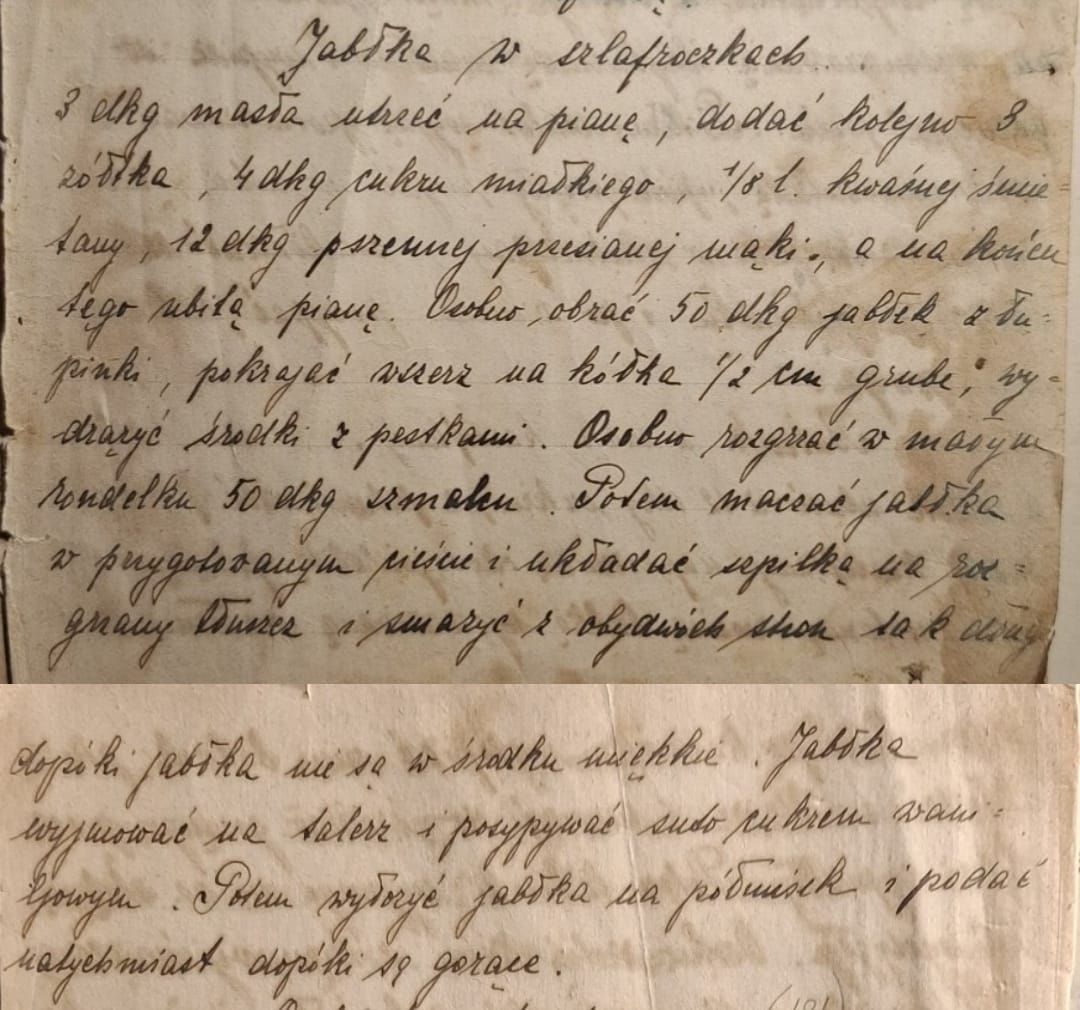 Jabłka w szlafroczkach
3 dkg masła utrzeć na pianę, dodać kolejno 3
żółtka, 4 dkg cukru miałkiego, 1/8 l. kwaśnej śmie=
tany, 12 dkg pszennej przesianej mąki, a na końcu
tęgo ubitą pianę. Osobno obrać 50 dkg jabłek z łu=
pinki, pokrajać wszerz na kółka 1/2 cm grube, wy=
drążyć środki z pestkami. Osobno rozgrzać w małym
rondelku 50 dkg szmalcu. Potem maczać jabłka
w przygotowanym cieście i układać szpilką na roz=
grzany tłuszcz i smażyć z obydwóch stron tak dług
dopóki jabłka nie są w środku miękkie. Jabłka
wyjmować na talerz i posypywać suto cukrem wani=
ljowym. Potem wyłożyć jabłka na półmisek i podać
natychmiast dopóki są gorące.